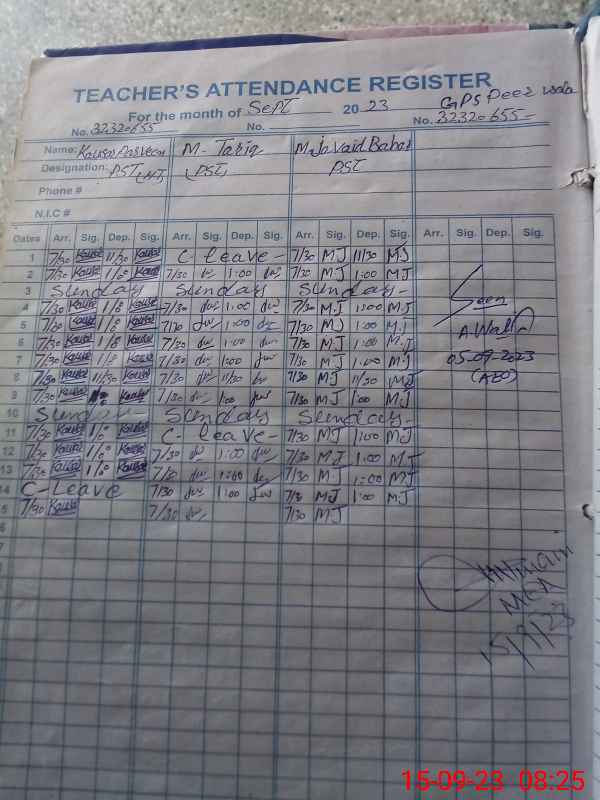 TEACHER'S ATTENDANCE REGISTER
For the month of Sept 2023 GPS Peer wala
No. 32320655 No. No. 32320655-
Name: Kausar Parveen M- Tariq M.Javaid Babar
Designation: PST PST PST
Phone #
N.I.C #
Dates Arr. Sig. Dep. Sig. Arr. Sig. Dep. Sig. Arr. Sig. Dep. Sig. Arr. Sig. Dep. Sig.
1 7/30 Kausar 11/30 Kausar C- leave - 7/30 MJ 11/30 MJ
2 7/30 Kausar 1/0 Kausar 7/30 1:00 7/30 MJ 1:00 MJ
3 Sunday Sunday Sunday -
4 7/30 Kausar 1/0 Kausar 7/30 1:00 7/30 M.J 1:00 M.J
5 7/30 Kausar 1/0 Kausar 7/30 1:00 7/30 MJ 1:00 M.J
6 7/30 Kausar 1/0 Kausar 7/30 1:00 7/30 MJ 1:00 M.J
7 7/30 Kausar 1/0 Kausar 7/30 1:00 7/30 MJ 1:00 MJ
8 7/30 Kausar 11/30 Kausar 7/30 11/30 7/30 MJ 11/30 MJ
9 7/30 Kausar Kausar 7/30 1:00 7/30 MJ 1:00 MJ
10 Sunday - Sunday Sunday -
11 7/30 Kausar 1/0 Kausar C- leave - 7/30 MJ 1:00 MJ
12 7/30 Kausar 1/0 Kausar 7/30 1:00 7/30 MJ 1:00 MJ
13 7/30 Kausar 1/0 Kausar 7/30 1:00 7/30 MJ 1:00 MJ
14 C-Leave 7/30 1:00 7/30 MJ 1:00 MJ
5 7/30 Kausar 7/30 7/30 MJ
6
7
Seen
05-09-2023
(AEO)
MEA
15/9/23
15-09-23 08:25